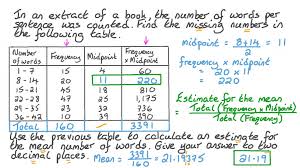 In an extract of a book, the number of words per
sentence was counted. Find the missing numbers in
the following table.
Number of words | Frequency | Midpoint | Frequency × Midpoint
1 - 7 | 15 | 4 | 60
8 - 14 | 20 | 11 | 220
15 - 21 | 45 | 18 | 810
22 - 28 | 47 | 25 | 1,175
29 - 35 | 23 | 32 | 736
36 - 42 | 10 | 39 | 390
Total | 160 | | 3391
midpoint = 8+14 / 2 = 11
frequency × midpoint
= 20 × 11
= 220
Estimate for the mean
= Total (Frequency × Midpoint) / Total (Frequency)
Use the previous table to calculate an estimate for
the mean number of words. Give your answer to two
decimal places. Mean = 3391 / 160 = 21.19375 21.19